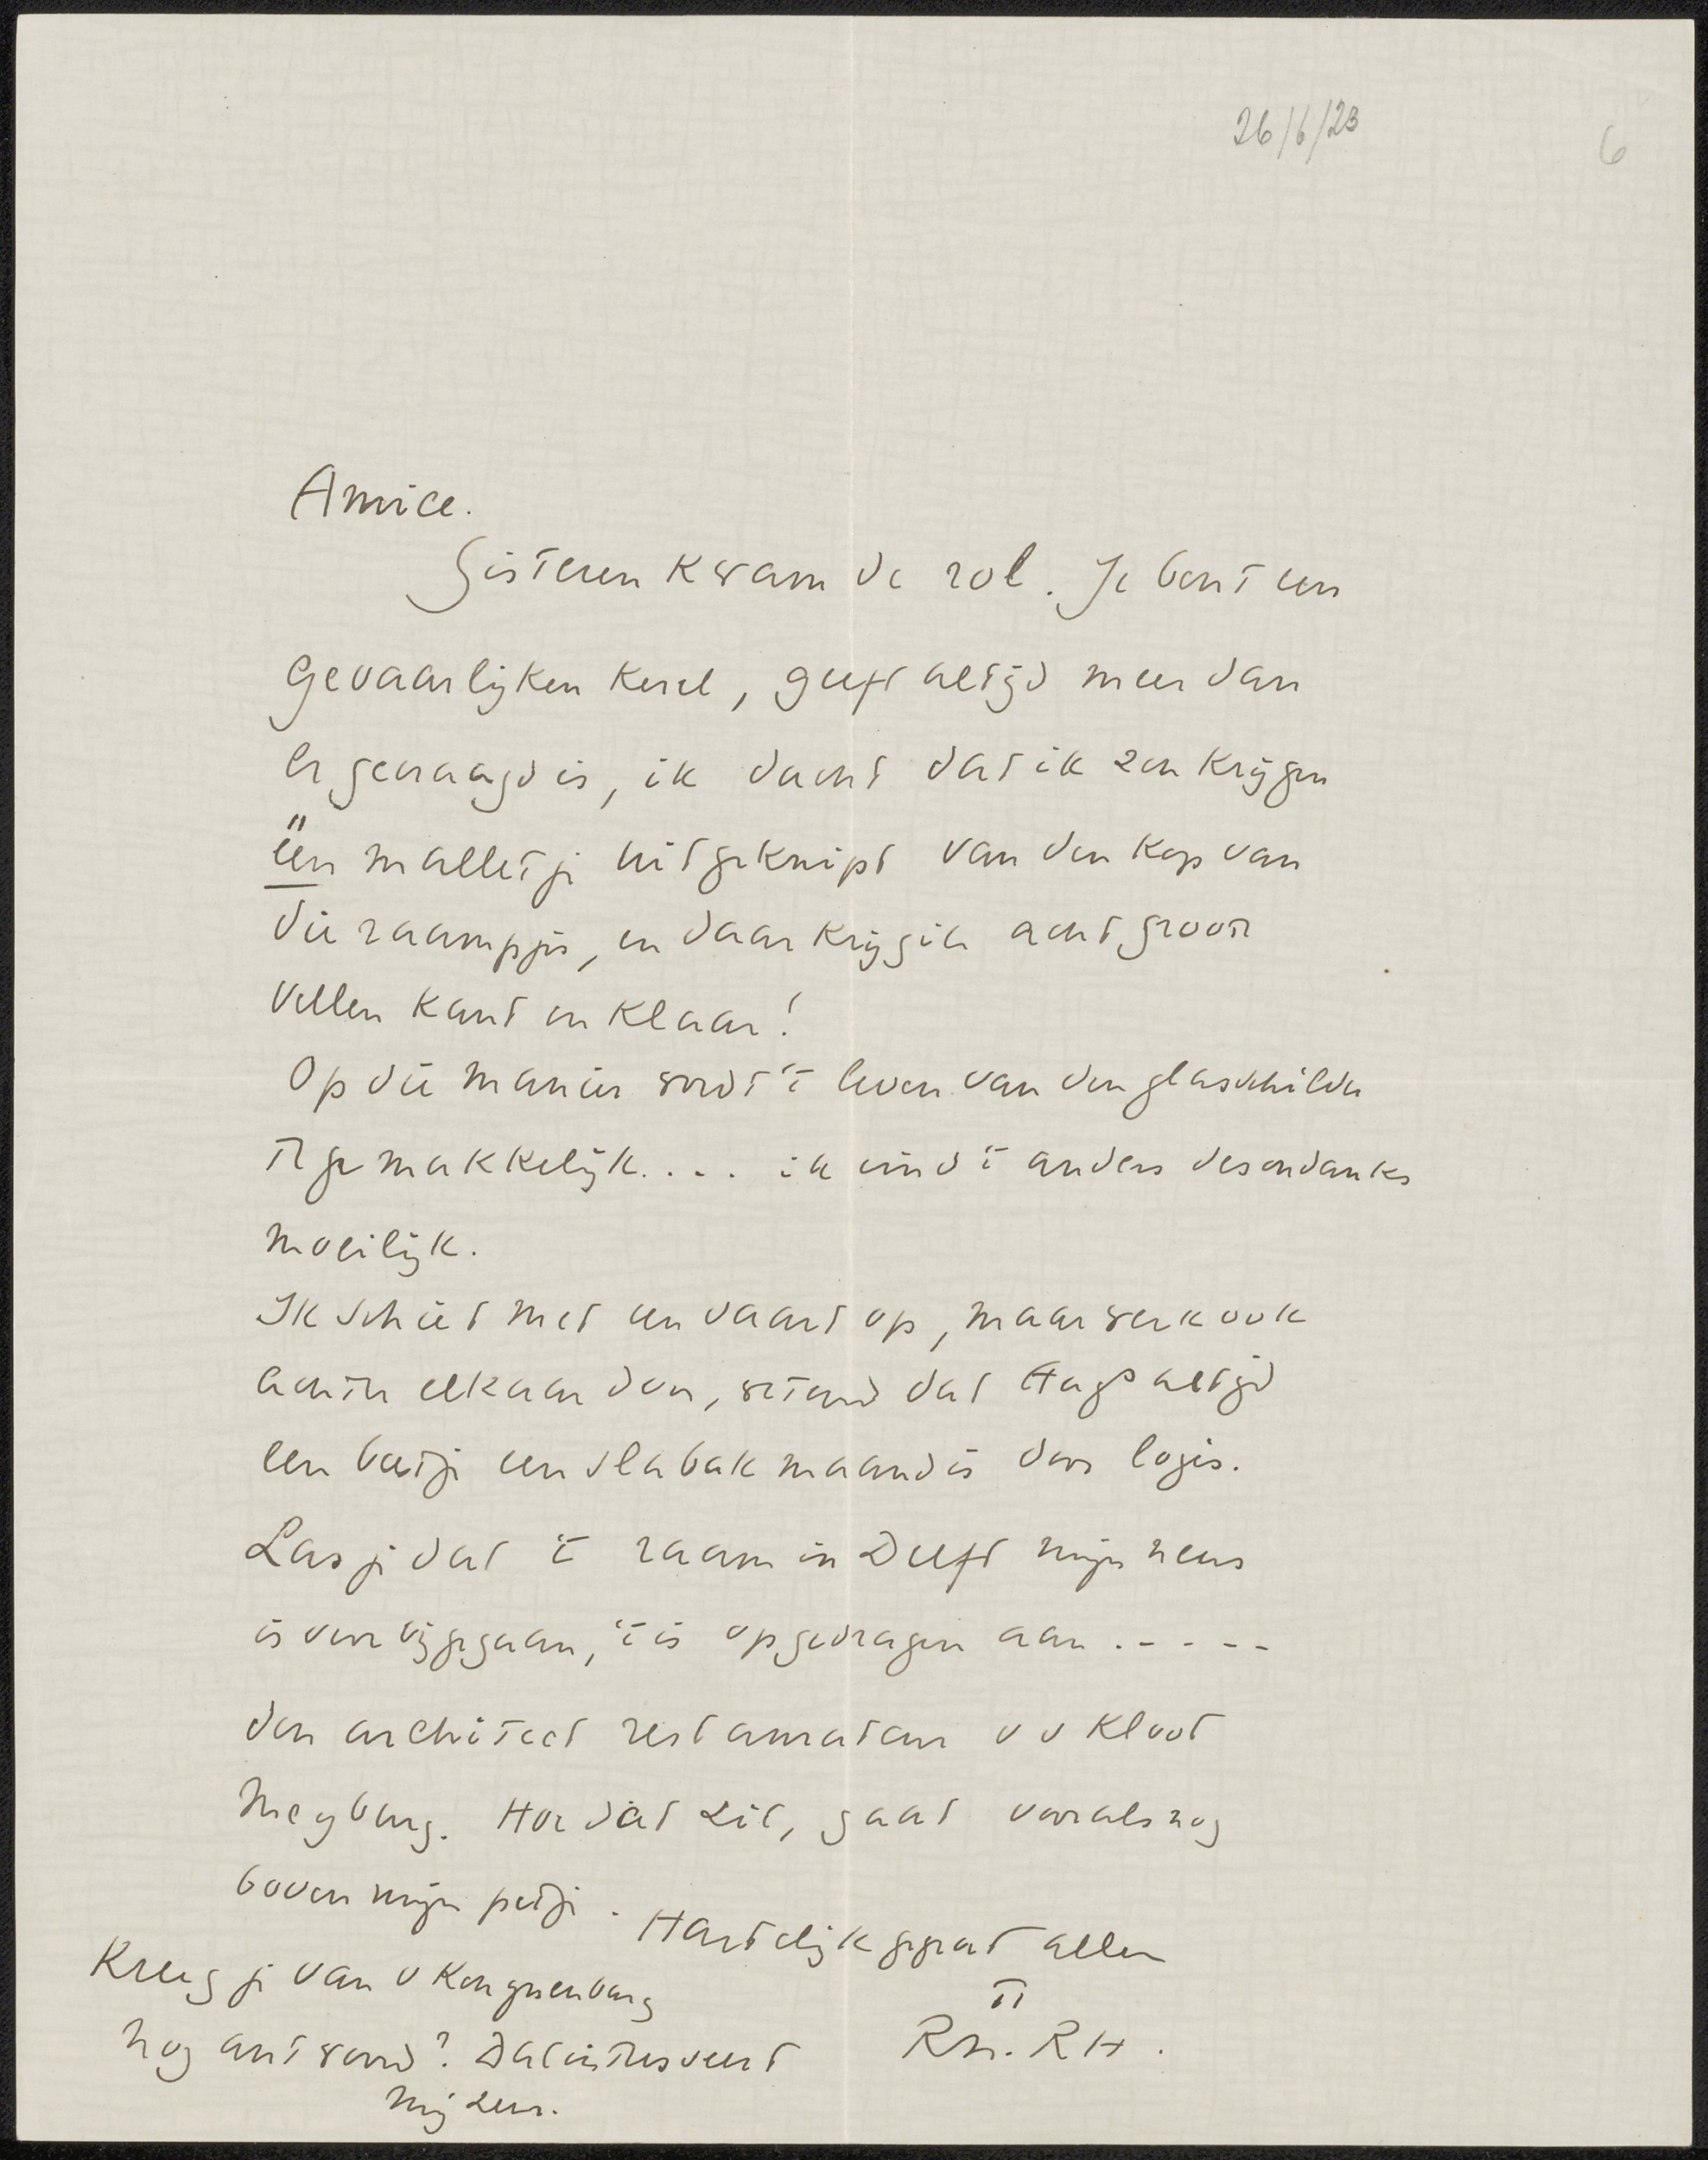 26/6/23
6
Amice.
Gisteren kwam de rol. Je bent een
gevaarlijken kerel, geeft altijd meer dan
er gevraagd is, ik dacht dat ik zou krijgen
één malletje uitgeknipt van den kop van
die raampjes, en daar krijg ik acht groote
vellen kant en klaar!
Op die manier wordt 't leven van den glasschilder
te gemakkelijk.... ik vind 't anders desondanks
moeilijk.
Ik schiet met een vaart op, maar werk ook
achter elkaar door, wetend dat Aug⁵ altijd
een beetje een slabakmaand is door logés.
Las je dat 't raam in Delft mijn neus
is voorbijgegaan, 't is opgedragen aan .----
den architect restaurateur v d Kloot
Meyburg. Hoe dàt zit, gaat vooralsnog
boven mijn petje. Hartelijk gegroet allen
tt
Rn. RH.
Kreeg je van v Kongnenburg
nog antwoord? Dat interesseert
mij zeer.